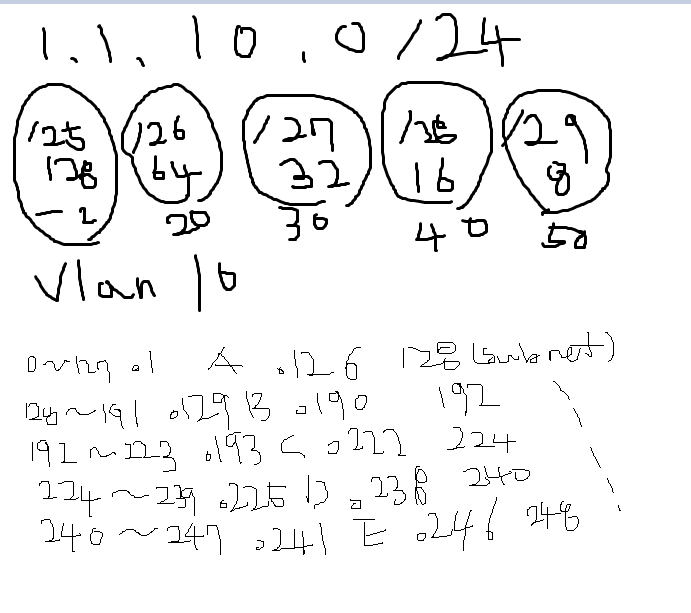 1.1.10.0/24
/25 /26 /27 /28 /29
128 64 32 16 8
-2 20 30 40 50
Vlan 10
0~127 .1 A .126 128 (subnet)
128~191 .129 B .190 192
192~223 .193 C .222 224
224~239 .225 D .238 240
240~247 .241 E .246 248